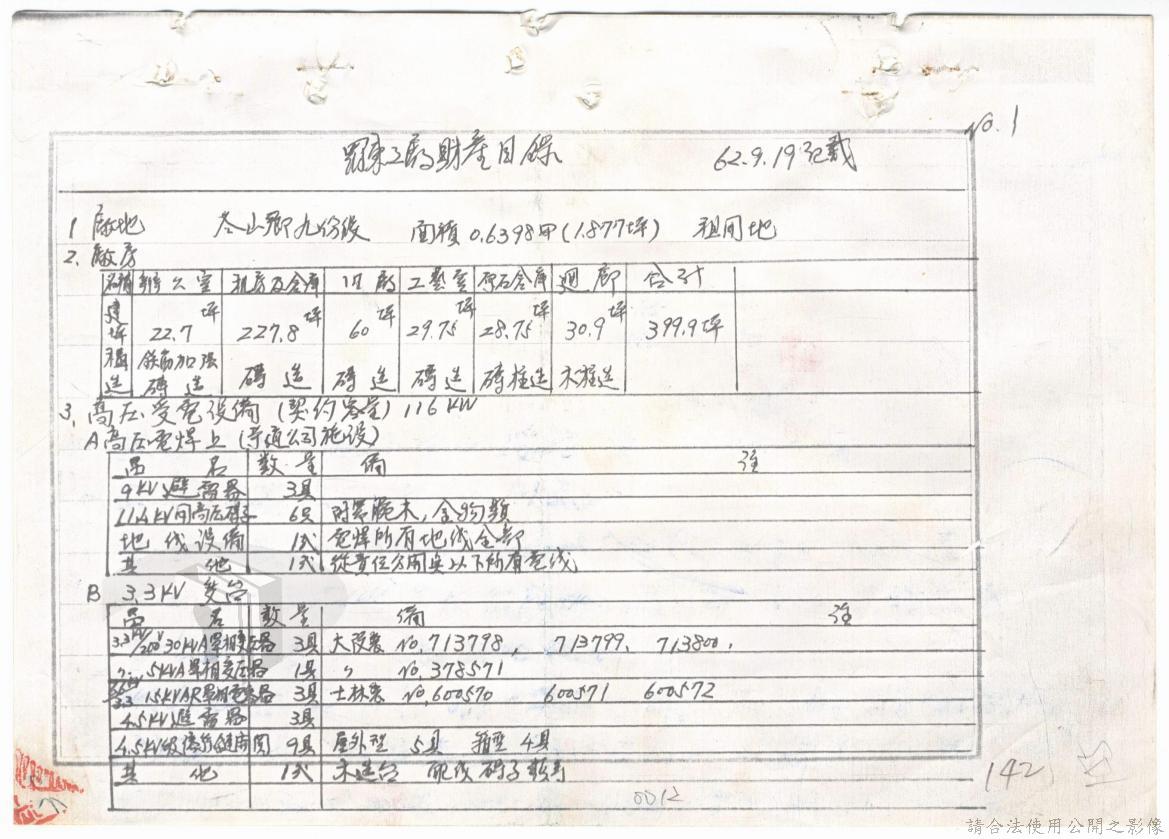 No. 1
羅東工廠財產目錄 62.9.19記載
1 廠地 冬山鄉九份段 面積 0.6398甲(1.877坪) 租用地
2. 廠房
名稱 辦公室 机房及倉庫 旧廠 工藝室 原石倉庫 廻廊 合計
建坪 22.7坪 227.8坪 60坪 29.75坪 28.75坪 30.9坪 399.9坪
構造 鉄筋加强磚造 磚造 磚造 磚造 磚柱造 木柱造
3. 高压受電設備 (契約容量) 116 KW
A 高压電桿上 (公司施設)
品名 数量 備註
9KV避雷器 3具
11.4KV用高压碍子 6只 附帶腕木,金物類
地线設備 1式 電桿所有地线全部
其他 1式 從責任分開点以下所有電线
B 3.3KV 変台
品名 数量 備註
3.3KV/200V 30KVA單相変压器 3具 大同製 No,713798, 713799, 713800,
〃 5KVA單相変压器 1具 〃 No,378571
3.3 15KVAR單相電容器 3具 士林製 No,600570 600571 600572
4.5KV避雷器 3具
4.5KV級保險絲開関 9具 屋外型 5具 箱型 4具
其他 1式 木造台 配线碍子
142
0012
請合法使用公開之影像